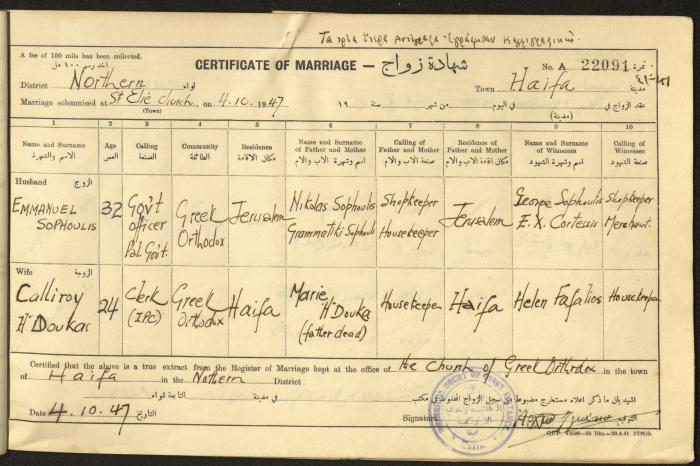 A fee of 100 mils has been collected.
CERTIFICATE OF MARRIAGE - شهادة زواج
No. A 22091 نمرة
District Northern لواء
Town Haifa مدينة
Marriage solemnized at St Elie Church, on 4.10.1947
(Town)
١٩ سنة من شهر في اليوم عقد الزواج في
(مدينة)
1 2 3 4 5 6 7 8 9 10
Name and Surname Age Calling Community Residence Name and Surname of Father and Mother Calling of Father and Mother Residence of Father and Mother Name and Surname of Witnesses Calling of Witnesses
الاسم والشهرة العمر الصنعة الطائفة مكان الاقامة اسم وشهرة الاب والام صنعة الاب والام مكان اقامة الاب والام اسم وشهرة الشهود صنعة الشهود
Husband الزوج
EMMANUEL SOPHOULIS 32 Gov't officer Pal. Gov't. Greek Orthodox Jerusalem Nikolas Sophoulis Grammatiki Sophouli Shopkeeper Housekeeper Jerusalem George Sophoulis E. X. Cortessis Shopkeeper Merchant.
Wife الزوجة
Calliroy H" Doukas 24 Clerk (IPC) Greek Orthodox Haifa Marie H" Douka (father dead) Housekeeper Haifa Helen Fafalios Housekeeper
Certified that the above is a true extract from the Register of Marriage kept at the office of the Church of Greek Orthodox in the town
of Haifa in the Nothern District
في مدينة التابعة للواء
اشهد بان ما ذكر اعلاه مستخرج مضبوط من سجل الزواج المحفوظ في مكتب
Date 4.10.47 التاريخ
Signature التوقيع